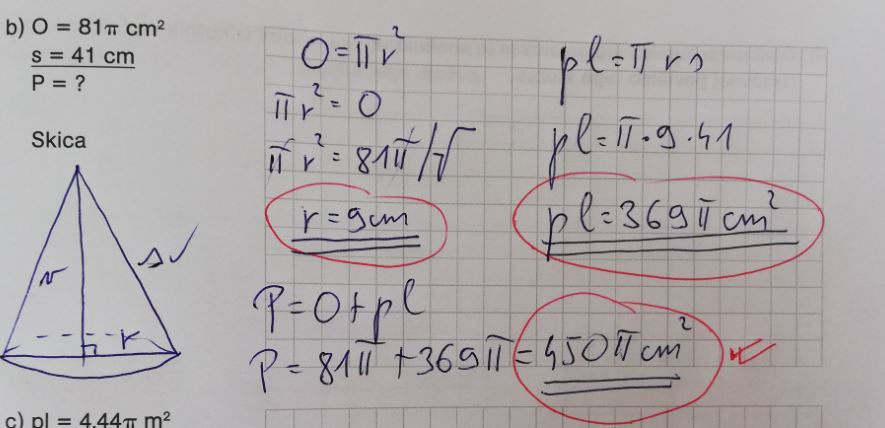 b) O = 81π cm²
s = 41 cm
P = ?
Skica
v
s
r
O = π r²
π r² = O
π r² = 81π /√
r = 9 cm
pl = π r s
pl = π · 9 · 41
pl = 369 π cm²
P = O + pl
P = 81π + 369π = 450 π cm²
c) pl = 4,44π m²